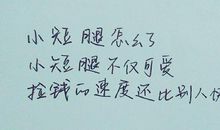 小短腿怎么了
小短腿不仅可爱
捡钱的速度还比别人快